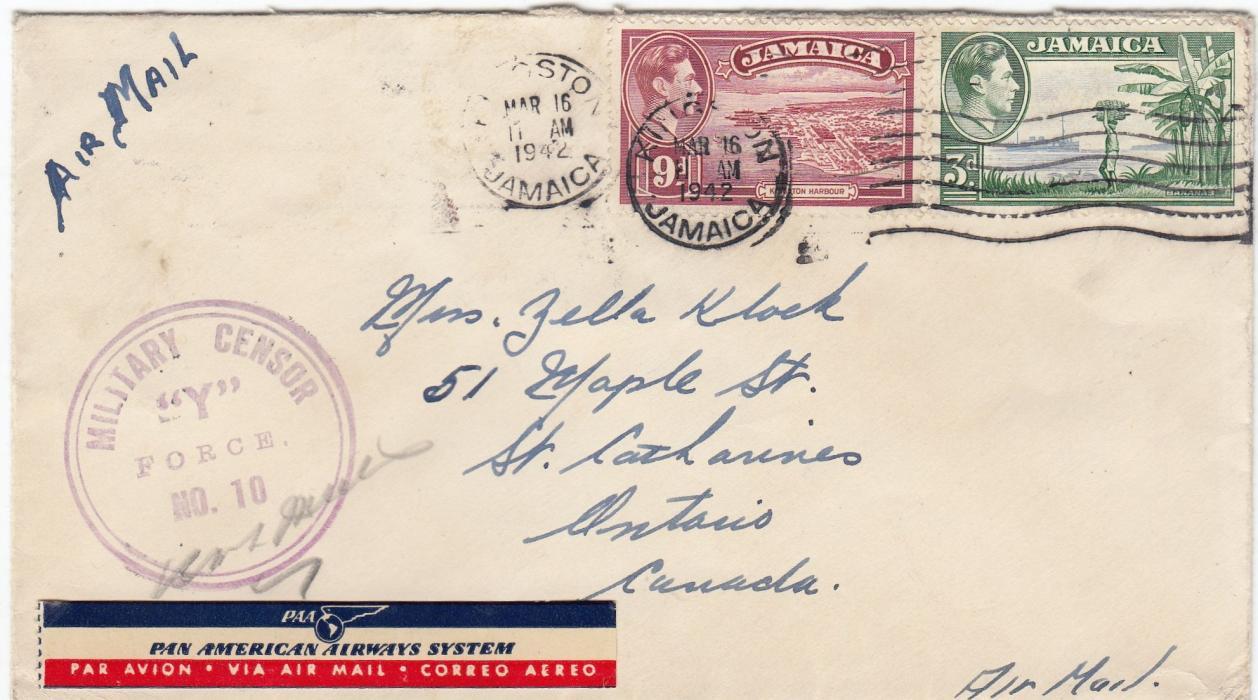 AIR MAIL
KINGSTON
MAR 16
11 AM
1942
JAMAICA
JAMAICA
9d
KINGSTON HARBOUR
KINGSTON
MAR 16
AM
1942
JAMAICA
JAMAICA
3d
BANANAS
Mrs. Zella Klock
51 Maple St.
St. Catharines
Ontario
Canada.
MILITARY CENSOR
"Y"
FORCE.
NO. 10
PAA
PAN AMERICAN AIRWAYS SYSTEM
PAR AVION • VIA AIR MAIL • CORREO AEREO
Air Mail.